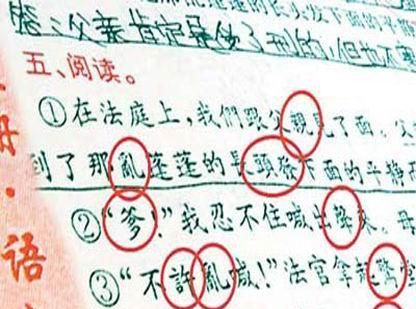 答：父亲肯定是了的，但也不
五、阅读。
①在法庭上，我們跟父親見了面。父
到了那亂蓬蓬的長頭髮下面的平静
②“爹！”我忍不住喊出聲來。母
③“不許亂喊！”法官拿起驚堂
册·语